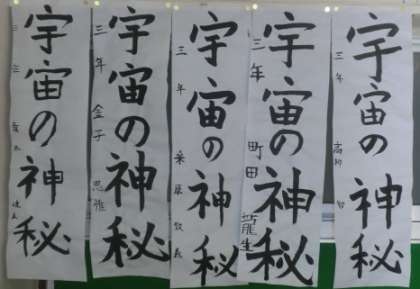 宇宙の神秘
三年 高 智
宇宙の神秘
三年 町田 龍生
宇宙の神秘
三年 桑藤
宇宙の神秘
三年 金子 思雅
宇宙の神秘
三年